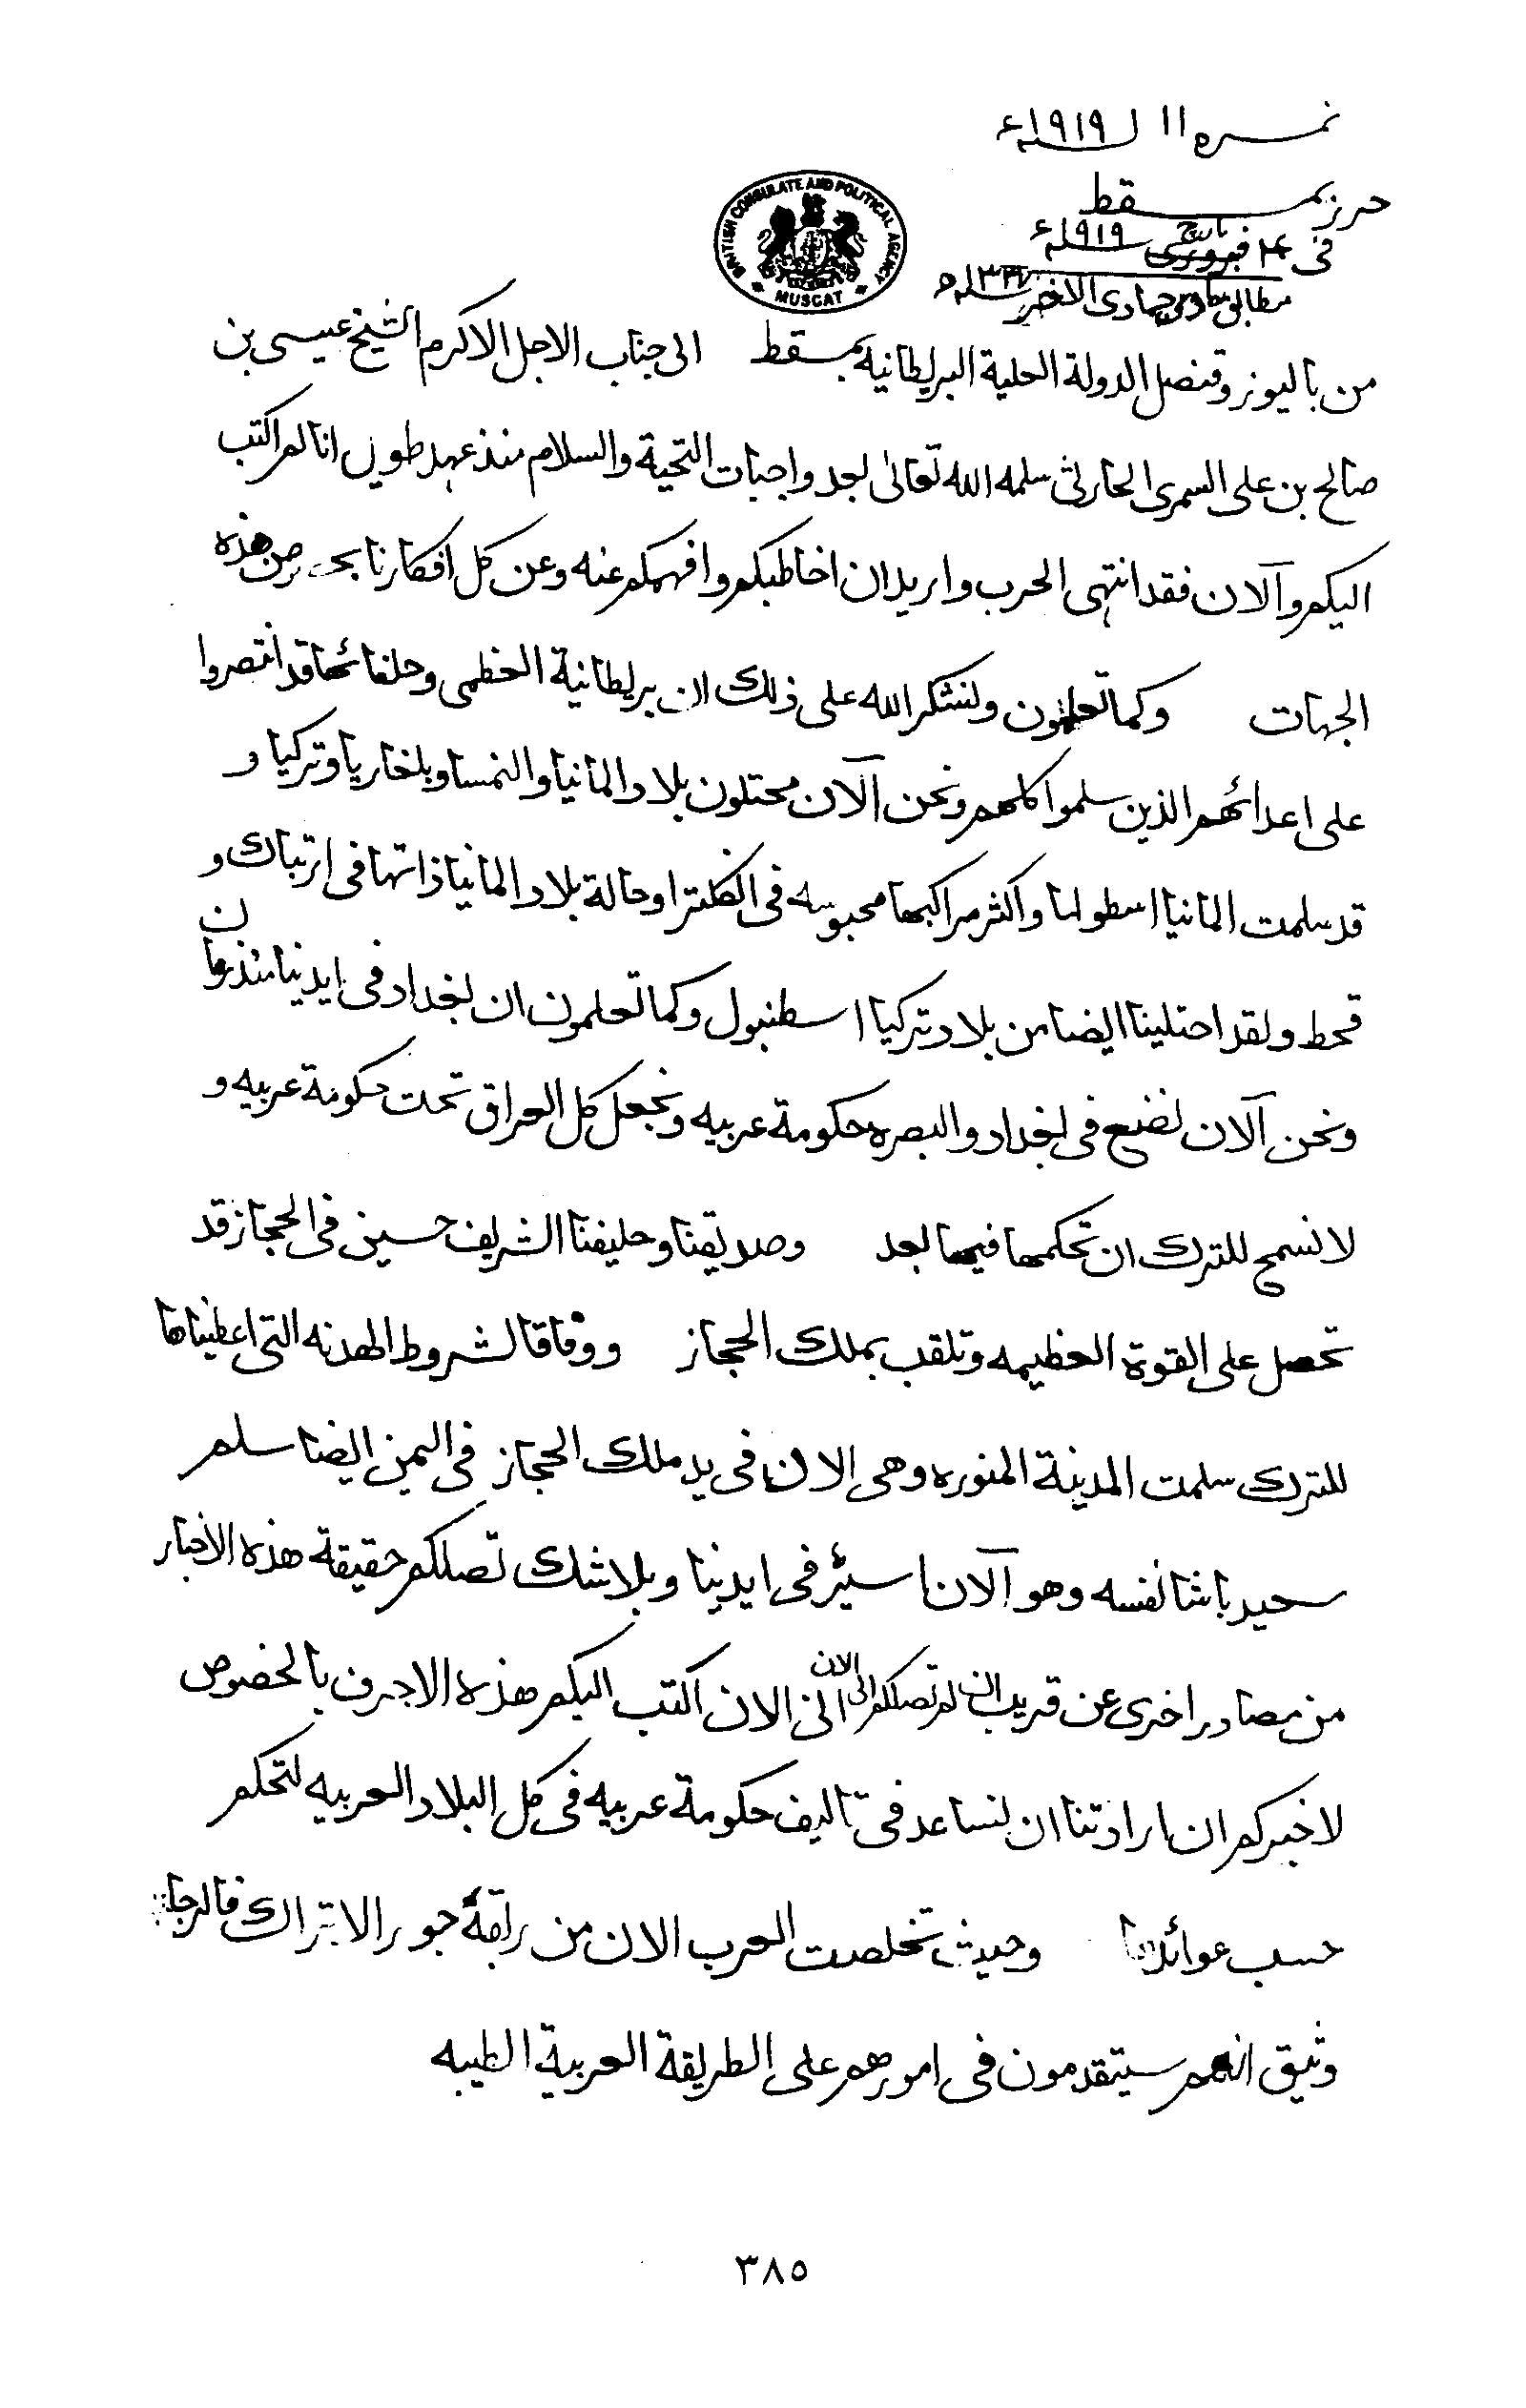 نمره ١١ لسنة ١٩١٩ء
حرر بمسقط
BRITISH CONSULATE AND POLITICAL AGENCY
MUSCAT
فى فبرورى مارچ سنة ١٩١٩ء
مطابق جمادى الاخر سنة ١٣٣٧ه
من باليوز وقنصل الدولة العلية البريطانيه بمسقط الى جناب الاجل الاكرم الشيخ عيسى بن
صالح بن على السمرى الحارثى سلمه الله تعالىٰ بعد واجبات التحية والسلام منذ عهد طويل انا لم اكتب
اليكم وآلان فقد انتهى الحرب واريد ان اخاطبكم وافهمكم عنه وعن كل افكارنا هذه
الجهات وكما تعلمون ولنشكر الله على ذلك ان بريطانية العظمى وحلفائها قد انتصروا
على اعدائهم الذين سلموا كلهم ونحن آلان محتلون بلاد المانيا والنمسا وبلغاريا وتركيا و
قد سلمت المانيا اسطولها واكثر مراكبها محبوسه فى انكلترا وحالة بلاد المانيا ذاتها فى ارتباك و
قحط ولقد احتلينا ايضا من بلاد تركيا اسطنبول وكما تعلمون ان بغداد فى ايدينا منذ زمان
ونحن آلان نضع فى بغداد والبصره حكومة عربيه ونجعل كل العراق تحت حكومة عربيه و
لا نسمح للترك ان تحكمها فيها بعد وصديقنا وحليفنا الشريف حسين فى الحجاز قد
تحصل على القوة العظيمه وتلقب بملك الحجاز ووفاقا لشروط الهدنه التى اعطيناها
للترك سلمت المدينة المنوره وهى الان فى يد ملك الحجاز فى اليمن ايضا سلم
سعيد باشا نفسه وهو آلان اسير فى ايدينا وبلا شك تصلكم حقيقة هذه الاخبار
من مصادر اخرى عن قريب ان لم تصلكم الى الان انى الان اكتب اليكم هذه الاحرف بالخصوص
لاخبركم ان ارادتنا ان نساعد فى تاليف حكومة عربيه فى كل البلاد العربيه لتحكم
حسب عوائدها وحيث تخلصت العرب الان من ربقة جور الاتراك فالرجاء
وثيق انهم سيتقدمون فى امورهم على الطريقة العربية الطيبه
٣٨٥